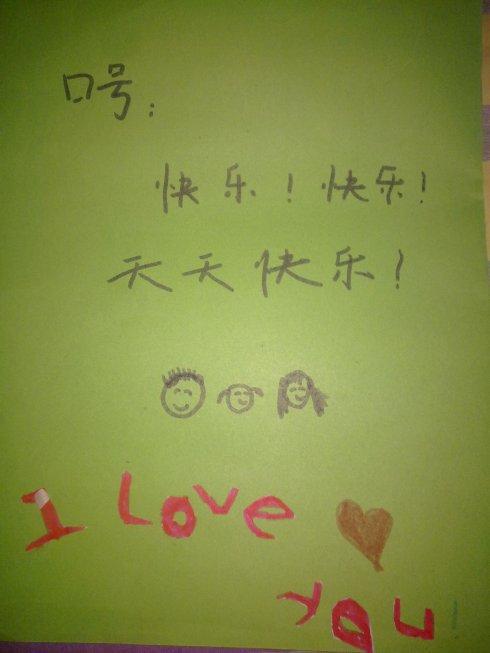 口号：
快乐！快乐！
天天快乐！
I Love
you!